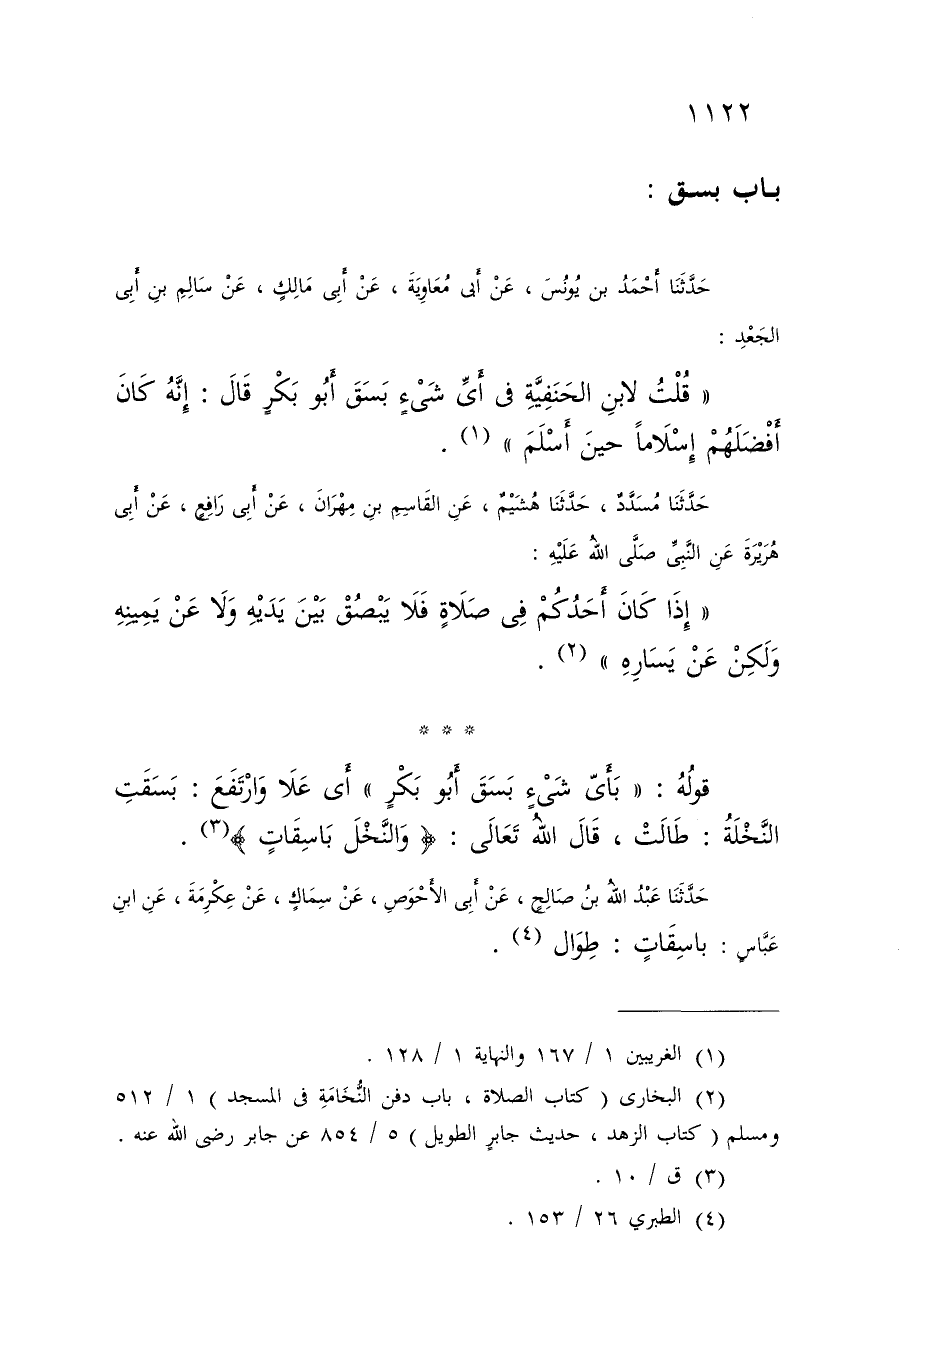 ١١٢٢
بـاب بسـق :
حَدَّثَنَا أَحْمَدُ بن يُونُسَ ، عَنْ أَبى مُعَاوِيَةَ ، عَنْ أَبِى مَالِكٍ ، عَنْ سَالِمِ بنِ أَبِى
الجَعْدِ :
« قُلْتُ لابنِ الحَنَفِيَّةِ فى أَىِّ شَىْءٍ بَسَقَ أَبُو بَكْرٍ قَالَ : إِنَّهُ كَانَ
أَفْضَلَهُمْ إِسْلَاماً حينَ أَسْلَمَ » (١) .
حَدَّثَنَا مُسَدَّدٌ ، حَدَّثَنَا هُشَيْمٌ ، عَنِ القَاسِمِ بنِ مِهْرَانَ ، عَنْ أَبِى رَافِعٍ ، عَنْ أَبِى
هُرَيْرَةَ عَنِ النَّبِىِّ صَلَّى اللهُ عَلَيْهِ :
« إِذَا كَانَ أَحَدُكُمْ فِى صَلَاةٍ فَلَا يَبْصُقْ بَيْنَ يَدَيْهِ وَلَا عَنْ يَمِينِهِ
وَلَكِنْ عَنْ يَسَارِهِ » (٢) .
* * *
قولُهُ : « بَأَىّ شَىْءٍ بَسَقَ أَبُو بَكْرٍ » أَى عَلَا وَارْتَفَعَ : بَسَقَتِ
النَّخْلَةُ : طَالَتْ ، قَالَ اللهُ تَعَالَى : ﴿ وَالنَّخْلَ بَاسِقَاتٍ ﴾(٣) .
حَدَّثَنَا عَبْدُ اللهِ بنُ صَالِحٍ ، عَنْ أَبِى الأَحْوَصِ ، عَنْ سِمَاكٍ ، عَنْ عِكْرِمَةَ ، عَنِ ابنِ
عَبَّاسٍ : باسِقَاتٍ : طِوَال (٤) .
(١) الغريبين ١ / ١٦٧ والنهاية ١ / ١٢٨ .
(٢) البخارى ( كتاب الصلاة ، باب دفن النُّخَامَةِ فى المسجد ) ١ / ٥١٢
ومسلم ( كتاب الزهد ، حديث جابرٍ الطويل ) ٥ / ٨٥٤ عن جابر رضى الله عنه .
(٣) ق / ١٠ .
(٤) الطبري ٢٦ / ١٥٣ .